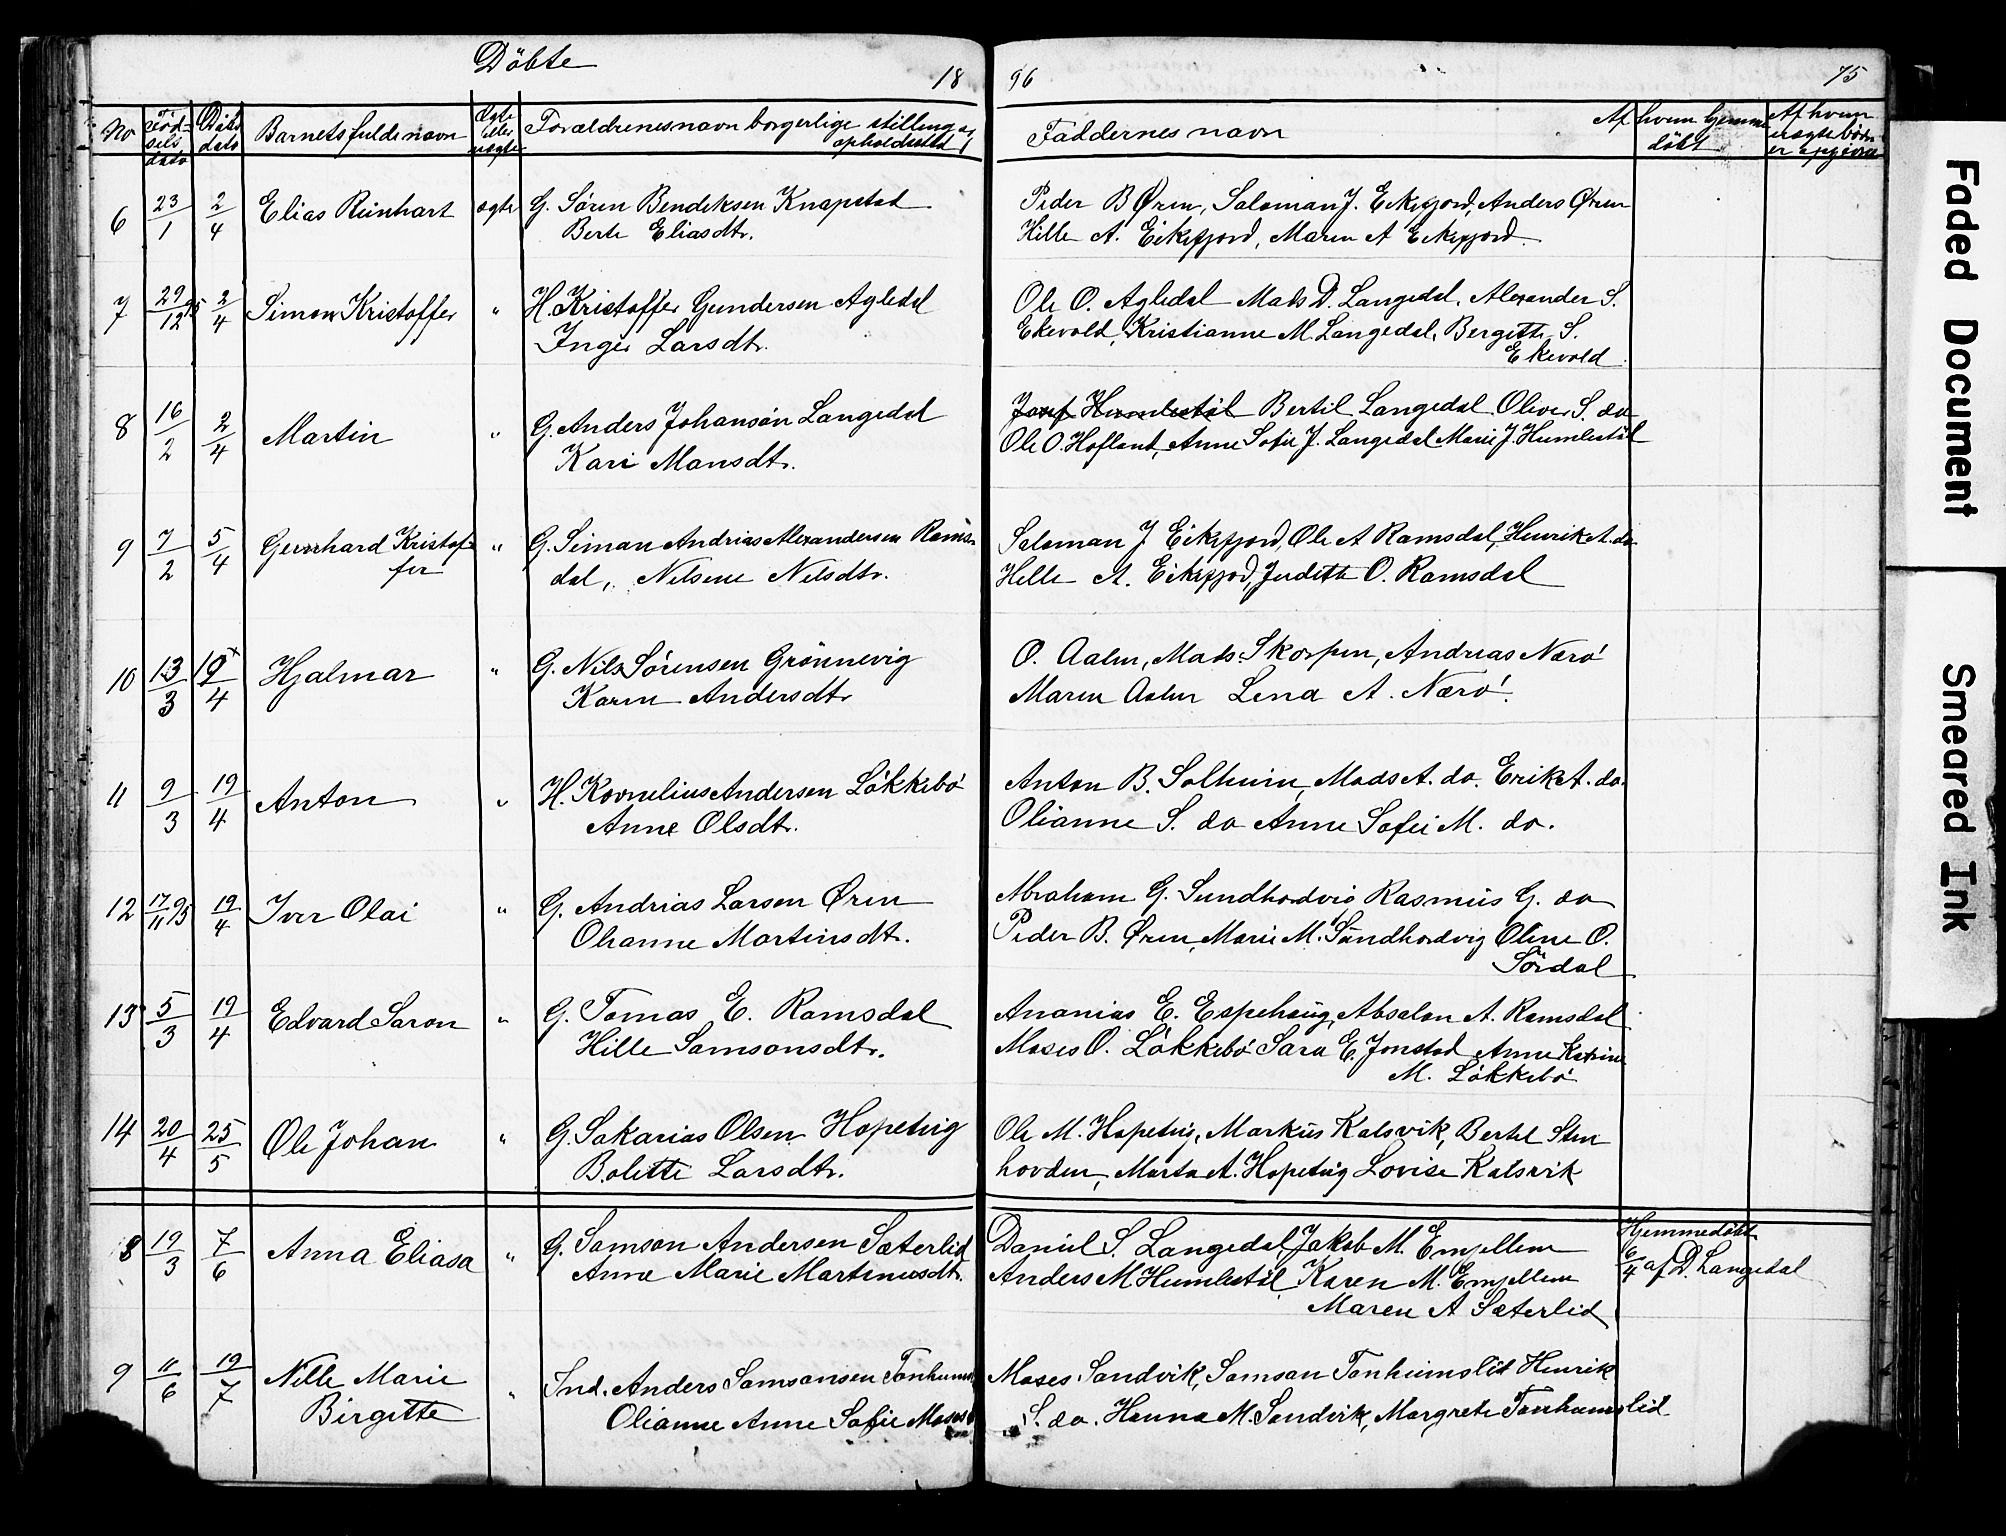 Döbte
18 96 75
No Födsels dato Döbs dato Barnets fulde navn Ægte eller uægte Forældrenes navn borgerlige stilling og opholdssted Faddernes navn Af hvem hjemmedöbt Af hvem uægte börn er opgivne
6 23/1 2/4 Elias Reinhart ægte G. Sören Bendiksen Knapstad Peder B Øren, Salaman J. Eikefjord, Anders Øren
Berte Eliasdtr. Hille A. Eikefjord, Maren A Eikefjord.
7 29/12 95 2/4 Simon Kristoffer " H. Kristoffer Gundersen Agledal Ole O. Agledal Mads D. Langedal, Alexander S.
Inger Larsdtr. Ekevold, Kristianne M. Langedal, Bergitte S.
Ekevold
8 16/2 2/4 Martin " G. Anders Johansön Langedal Josef Humlestöl Bertil Langedal Oliver S. do
Kari Mansdtr. Ole O. Hofland, Anne Sofie J. Langedal Marie J. Humlestöl
9 7/2 5/4 Gerhard Kristof- " G. Siman Andrias Alexandersen Rams-
fer dal, Nilsine Nilsdtr. Salaman J Eikefjord, Ole A Ramsdal, Henrik A. do
Hille A. Eikefjord, Judith O. Ramsdal
10 13/3 19/4 Hjalmar " G. Nils Sörensen Grönnevig O. Aalen, Mads Skorpen, Andreas Nærö
Karen Andersdtr Maren Aalen Lena A. Nærö.
11 9/3 19/4 Anton " H. Kornelius Andersen Lökkebö Anton B. Solheim, Mads A. do. Erik A. do.
Anne Olsdtr. Olianne S. do Anne Sofie M. do.
12 17/11 95 19/4 Iver Olai " G. Andrias Larsen Øren Abraham G. Sundhordvig Rasmus G. do
Ohanne Martinsdtr. Peder B. Øren, Marie M. Sundhordvig Oline O.
Sördal
13 5/3 19/4 Edvard Saron " G. Tomas E. Ramsdal Ananias E. Espehaug, Absalon A. Ramsdal
Hille Samsonsdtr. Moses O. Lökkebö Sara E. Jonstad Anne Katrine
M. Lökkebö
14 20/4 25/5 Ole Johan " G. Sakarias Olsen Hopeteig Ole M. Hopeteig, Markus Kalsvik, Bertel Sten
Bolette Larsdtr. hovden, Marta A. Hopeteig Lovise Kalsvik
8 19/3 7/6 Anna Eliasa " G. Samson Andersen Sæterlid Daniel S. Langedal, Jakob M. Emjellem Hjemmedöbt
Anne Marie Martinusdtr. Anders M Humlestöl Karen M. Emjellem 6/4 af D. Langedal
Maren A Sæterlid
9 11/6 19/7 Nille Marie " Ind. Anders Samsonsen Tonheims Moses Sandvik, Samson Tonheimslid Henrik
Birgitte Olianne Anne Sofie Moses S. do. Hanna M. Sandvik, Margrete Tonheimslid
Faded Document
Smeared Ink